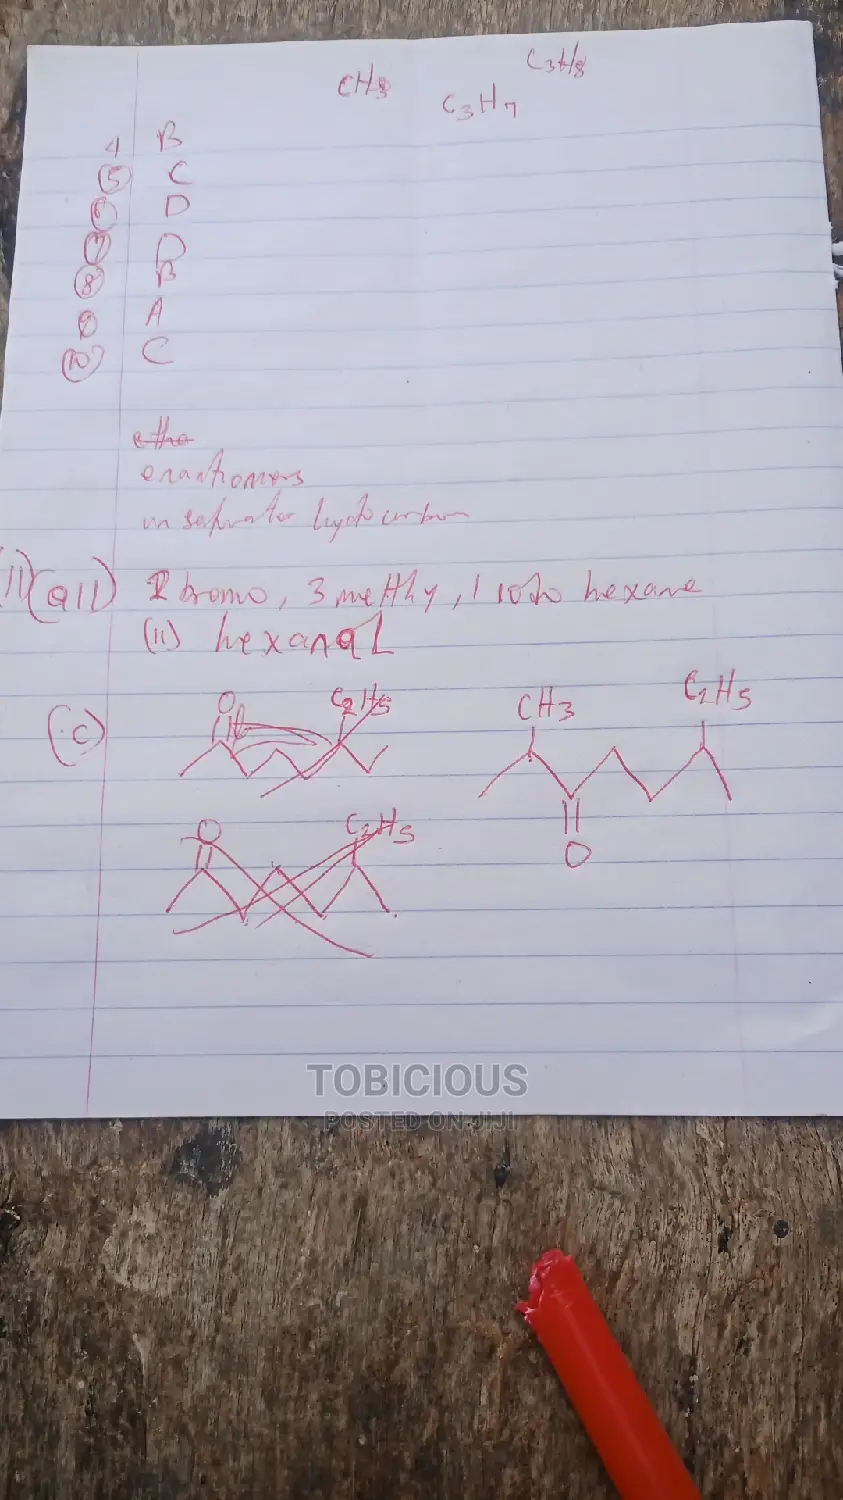 C3H8
CH3
C3H7
4 B
5 C
6 D
7 D
8 B
9 A
10 C
etha
enantiomers
un saturator
(ii) (a11) 2 bromo, 3 methy, 1 iodo hexane
(ii) hexanal
(c) O C2H5 CH3 C2H5
O C2H5 O
TOBICIOUS
POSTED ON JIJI